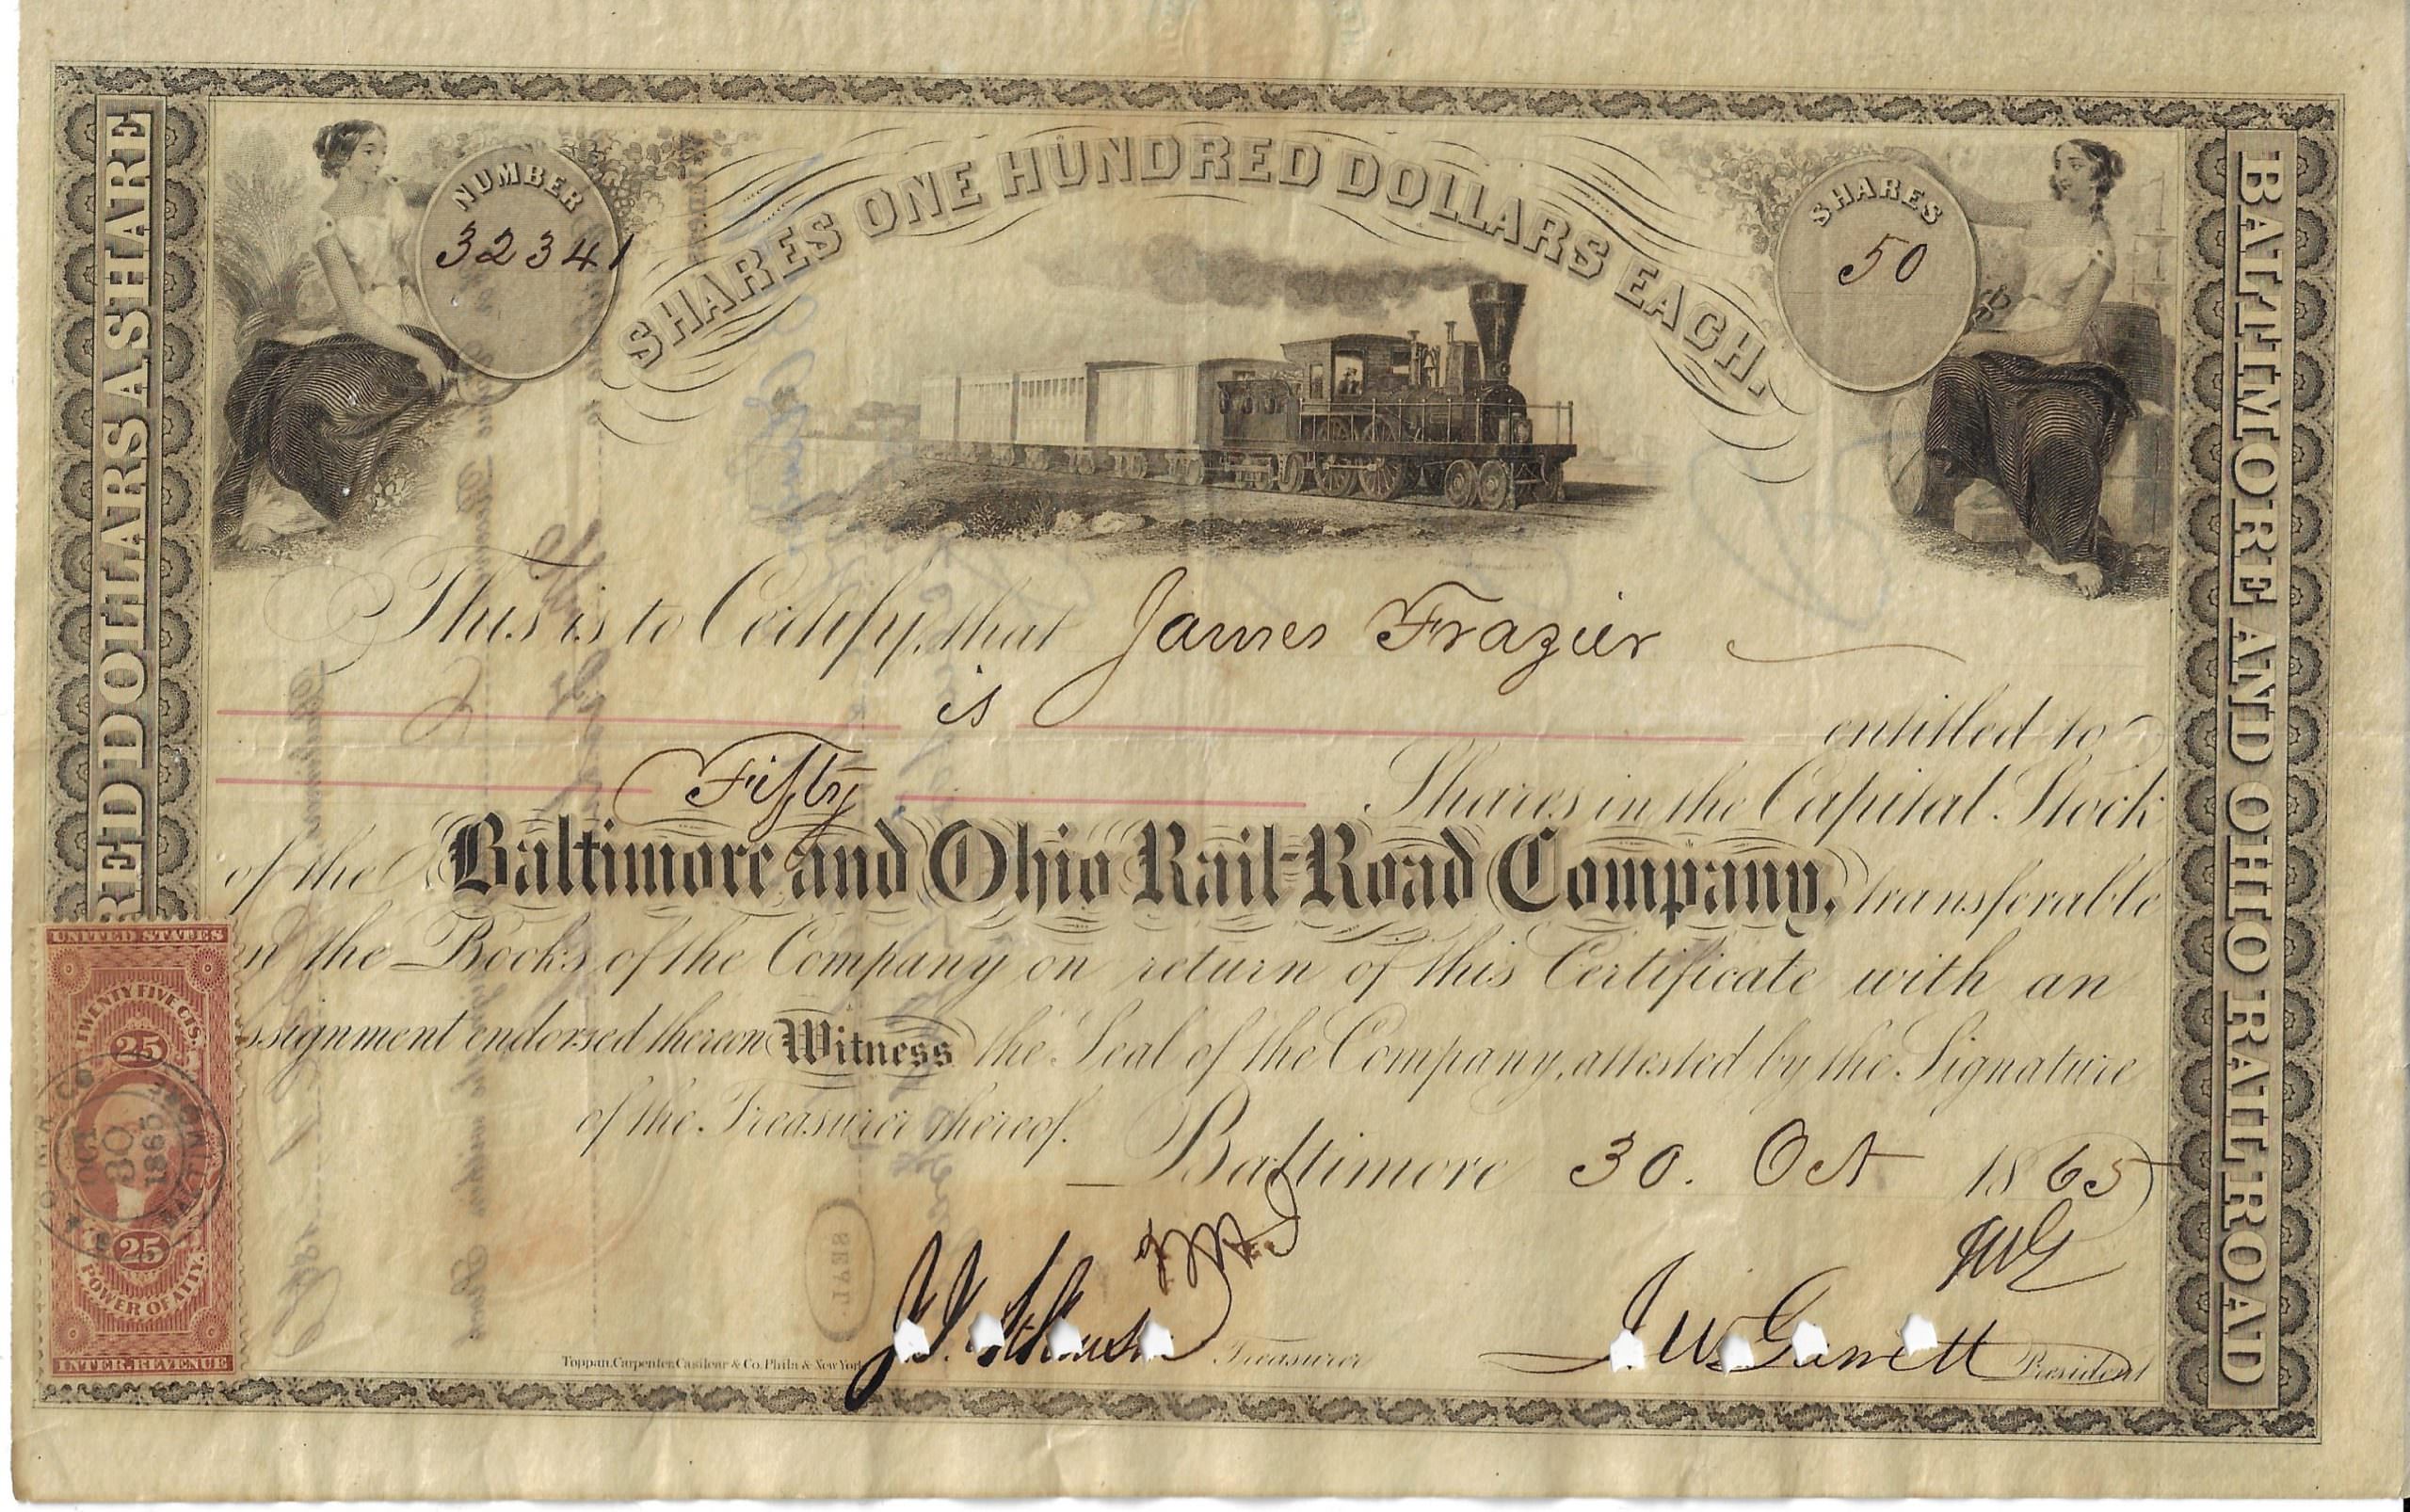 SHARES ONE HUNDRED DOLLARS EACH.
NUMBER
32341
SHARES
50
RED DOLLARS A SHARE
BALTIMORE AND OHIO RAILROAD
This is to Certify, that James Frazier
is entitled to
Fifty Shares in the Capital Stock
of the Baltimore and Ohio Rail-Road Company, transferable
n the Books of the Company on return of this Certificate with an
ssignment endorsed thereon Witness the Seal of the Company, attested by the Signature
of the Treasurer thereof.
Baltimore 30. Oct 1865
JWG
Treasurer
J W Garrett President
Toppan, Carpenter, Casilear & Co. Phila & New York
SEAL
UNITED STATES
TWENTY FIVE CTS.
25
OCT
30
1865
BALTIMORE
25
POWER OF ATTY.
INTER. REVENUE